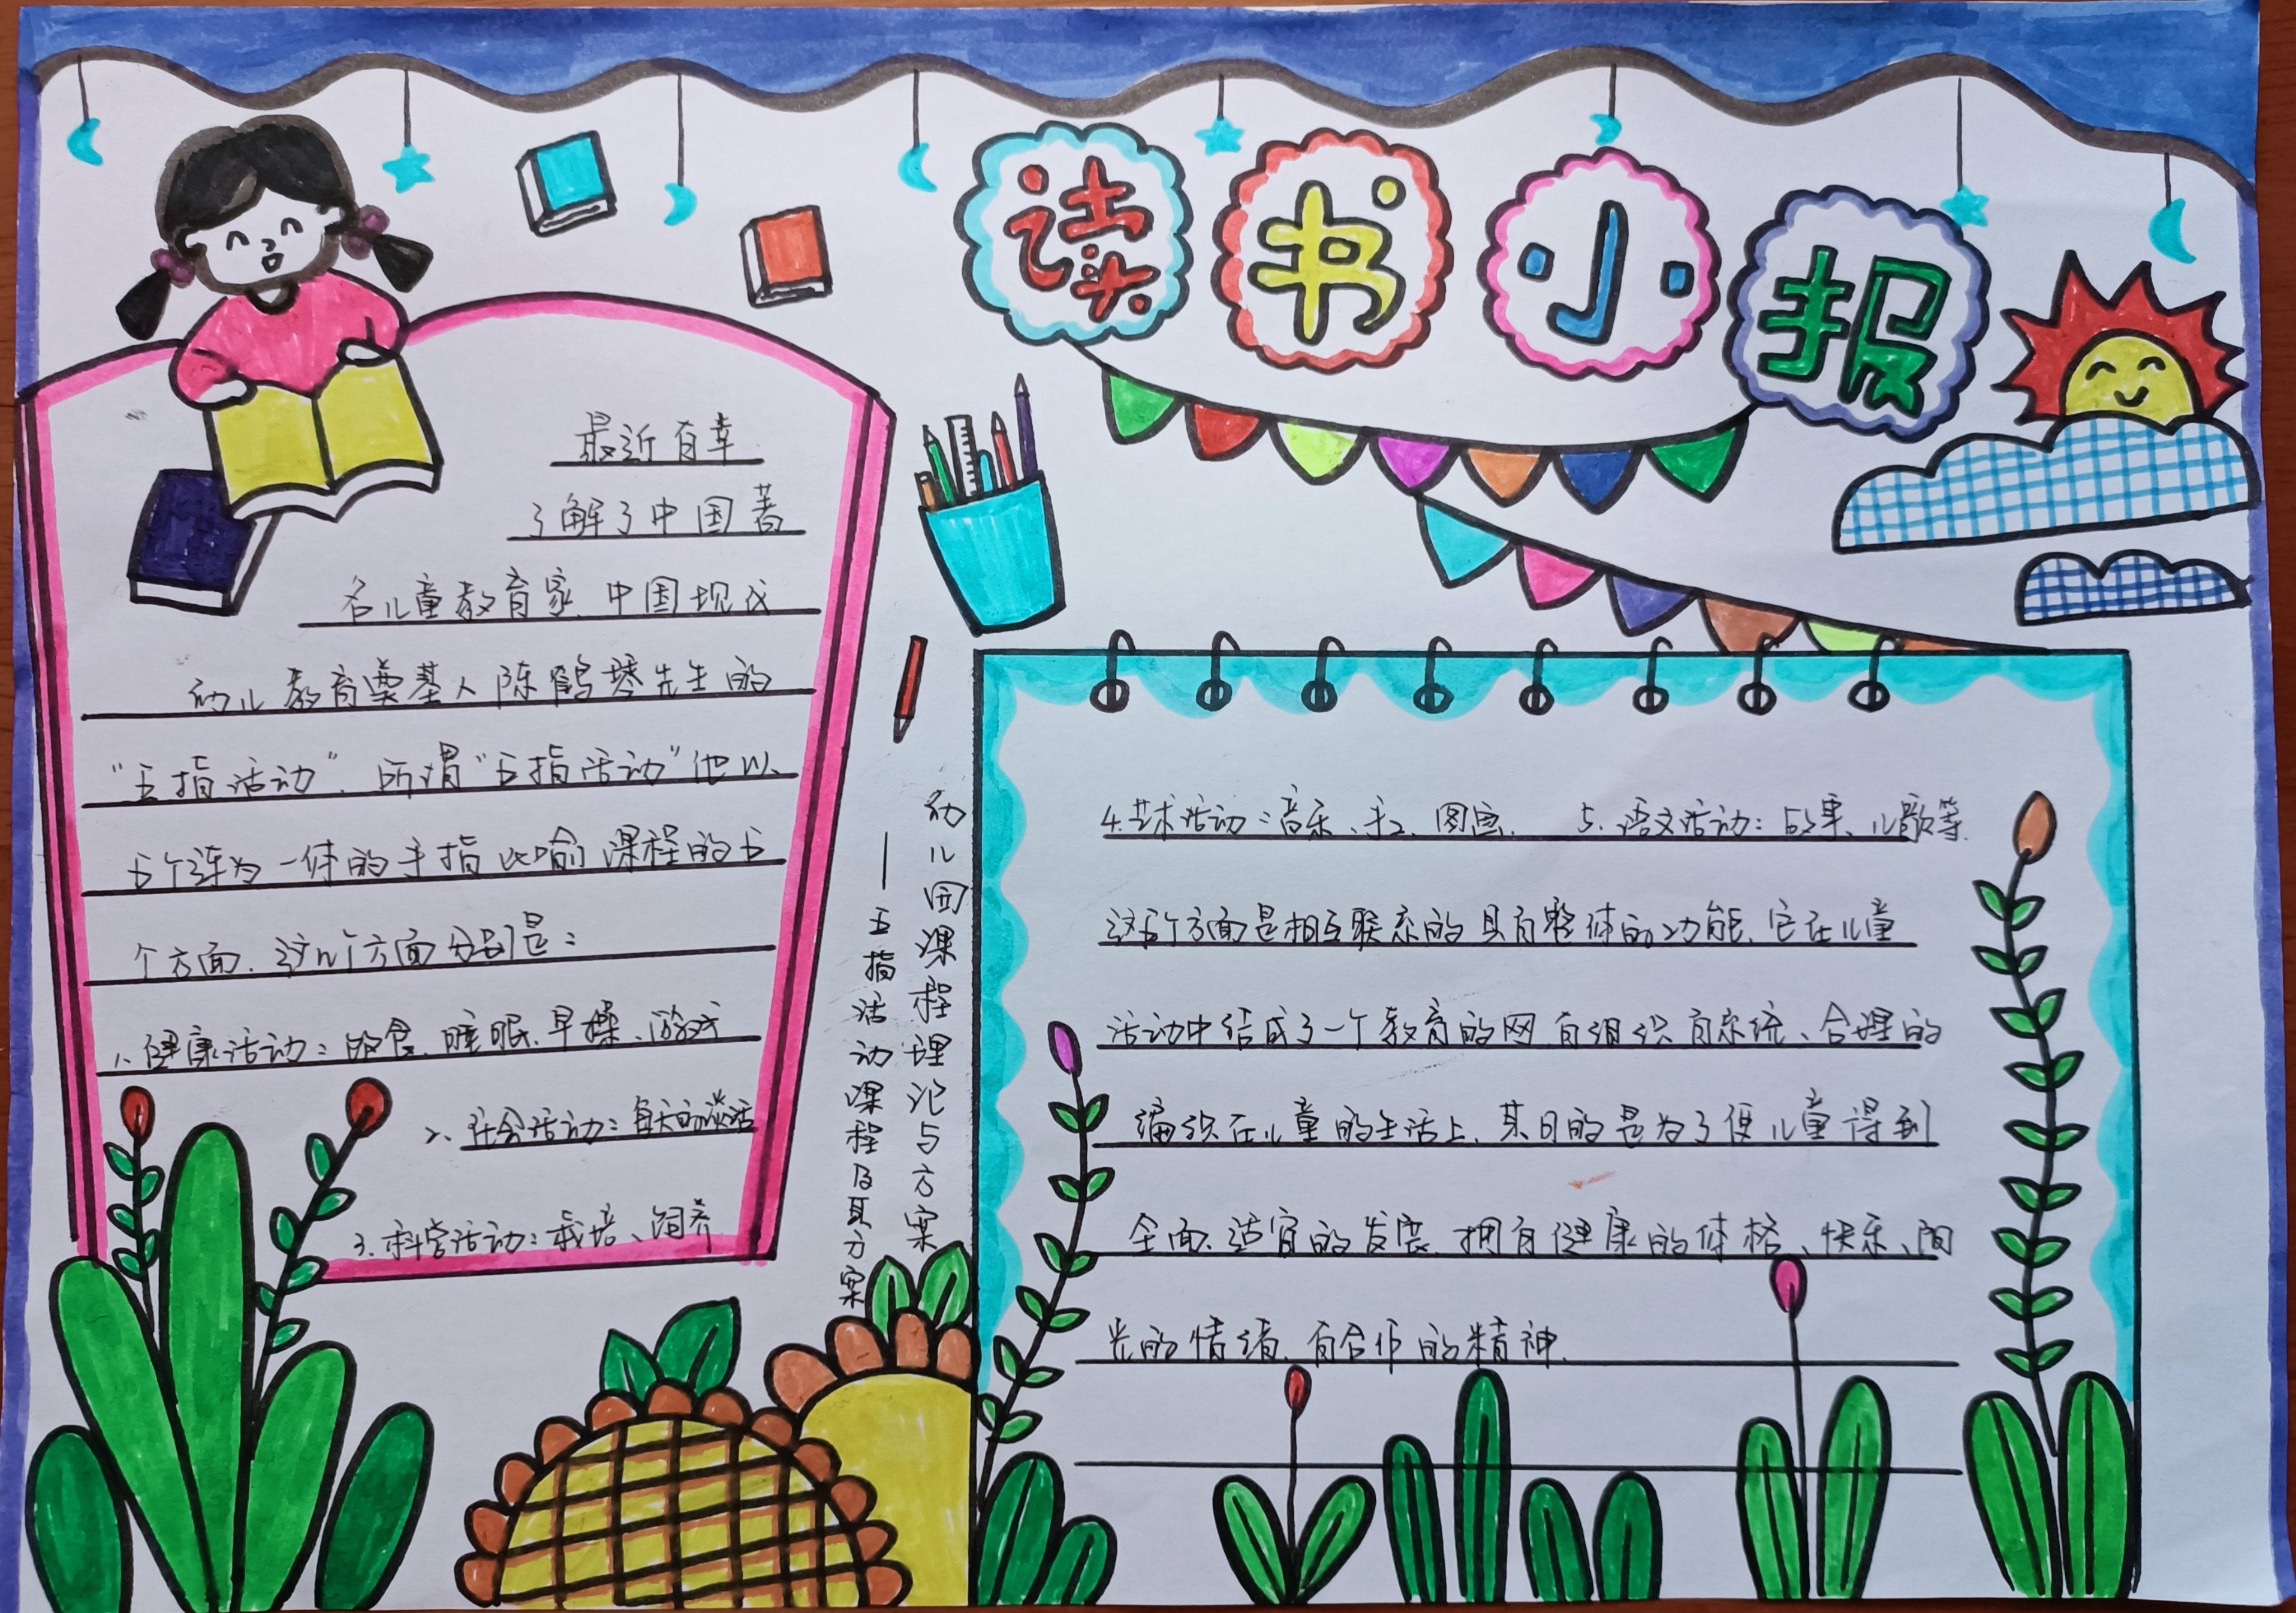 读书小报
最近有幸
了解了中国著
名儿童教育家、中国现代
幼儿教育奠基人陈鹤琴先生的
“五指活动”。所谓“五指活动”他以
五个连为一体的手指比喻课程的五
个方面、这几个方面分别是：
1、健康活动：的食、睡眠、早操、游戏
2、社会活动：每天的谈话
3、科学活动：栽培、饲养
幼儿园课程理论与方案
——五指活动课程及其方案
4.艺术活动：音乐、手工、图画、 5.语文活动：故事、儿歌等.
这五个方面是相互联系的具有整体的功能、它在儿童
活动中结成了一个教育的网、有组织有系统、合理的
编织在儿童的生活上、其目的是为了使儿童得到
全面、适宜的发展、拥有健康的体格、快乐、阳
光的情绪、有合作的精神.